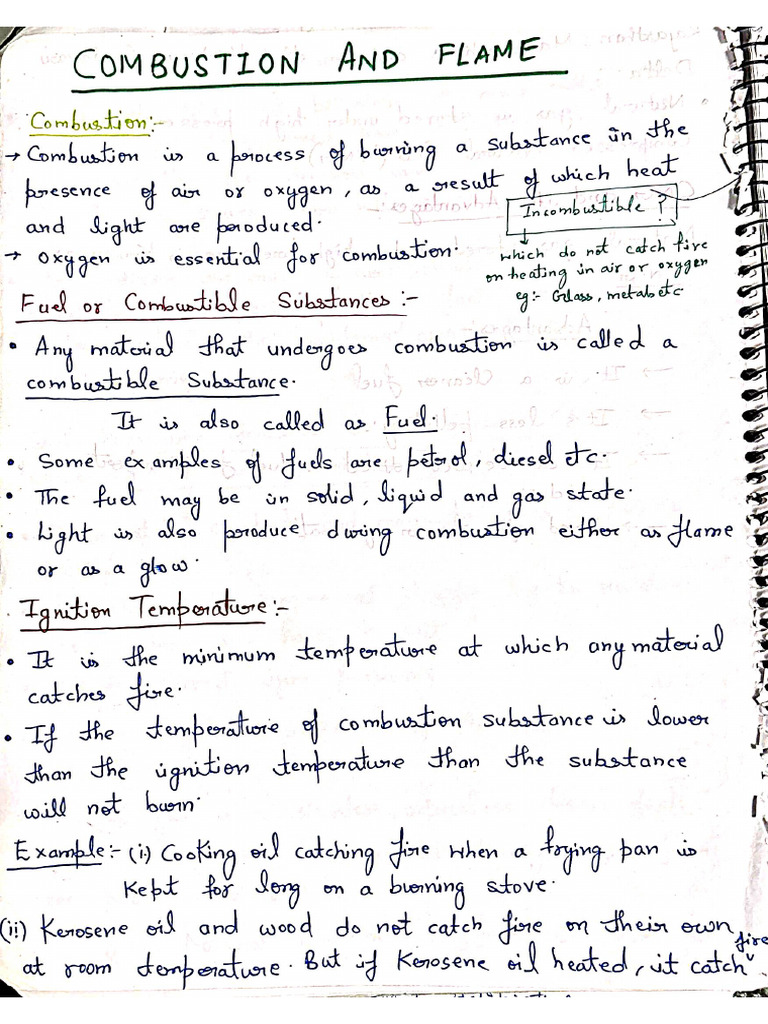 COMBUSTION AND FLAME
Combustion:-
→ Combustion is a process of burning a substance in the
presence of air or oxygen, as a result of which heat
and light are produced.
→ Oxygen is essential for combustion.
Incombustible ?
which do not catch fire
on heating in air or oxygen
eg:- Glass, metals etc
Fuel or Combustible Substances:-
• Any material that undergoes combustion is called a
combustible Substance.
It is also called as Fuel.
• Some examples of fuels are petrol, diesel etc.
• The fuel may be in solid, liquid and gas state.
• Light is also produce during combustion either as flame
or as a glow.
Ignition Temperature:-
• It is the minimum temperature at which any material
catches fire.
• If the temperature of combustion substance is lower
than the ignition temperature than the substance
will not burn.
Example:- (i) Cooking oil catching fire when a frying pan is
kept for long on a burning stove.
(ii) Kerosene oil and wood do not catch fire on their own
at room temperature. But if Kerosene oil heated, it catch fire